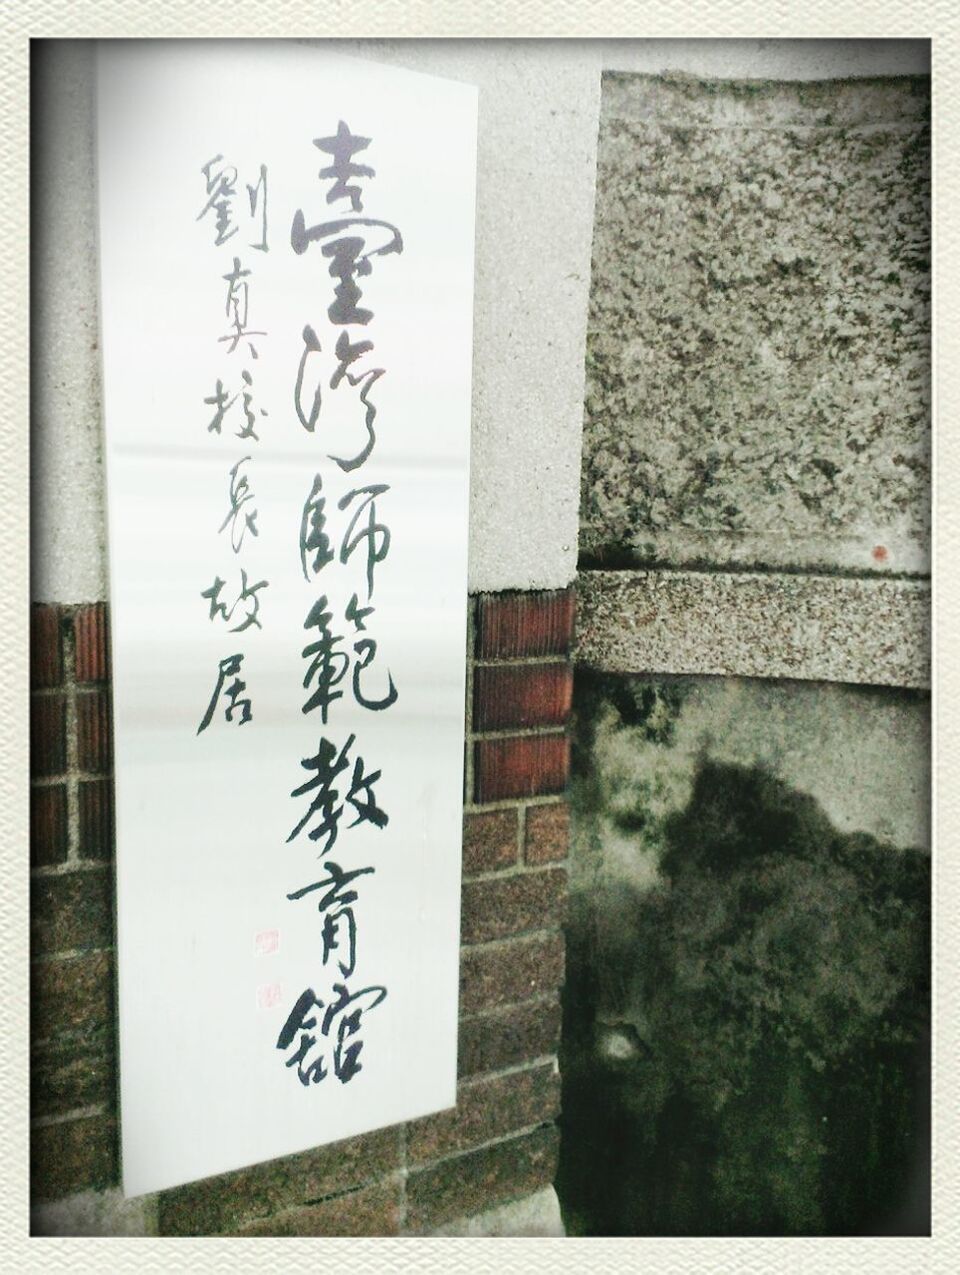 臺灣師範教育舘
劉真校長故居